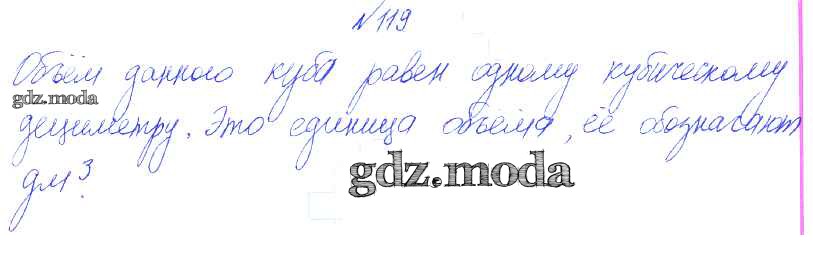 №119
Объём данного куба равен одному кубическому
gdz.moda
дециметру. Это единица объёма, её обозначают
gdz.moda
дм³.